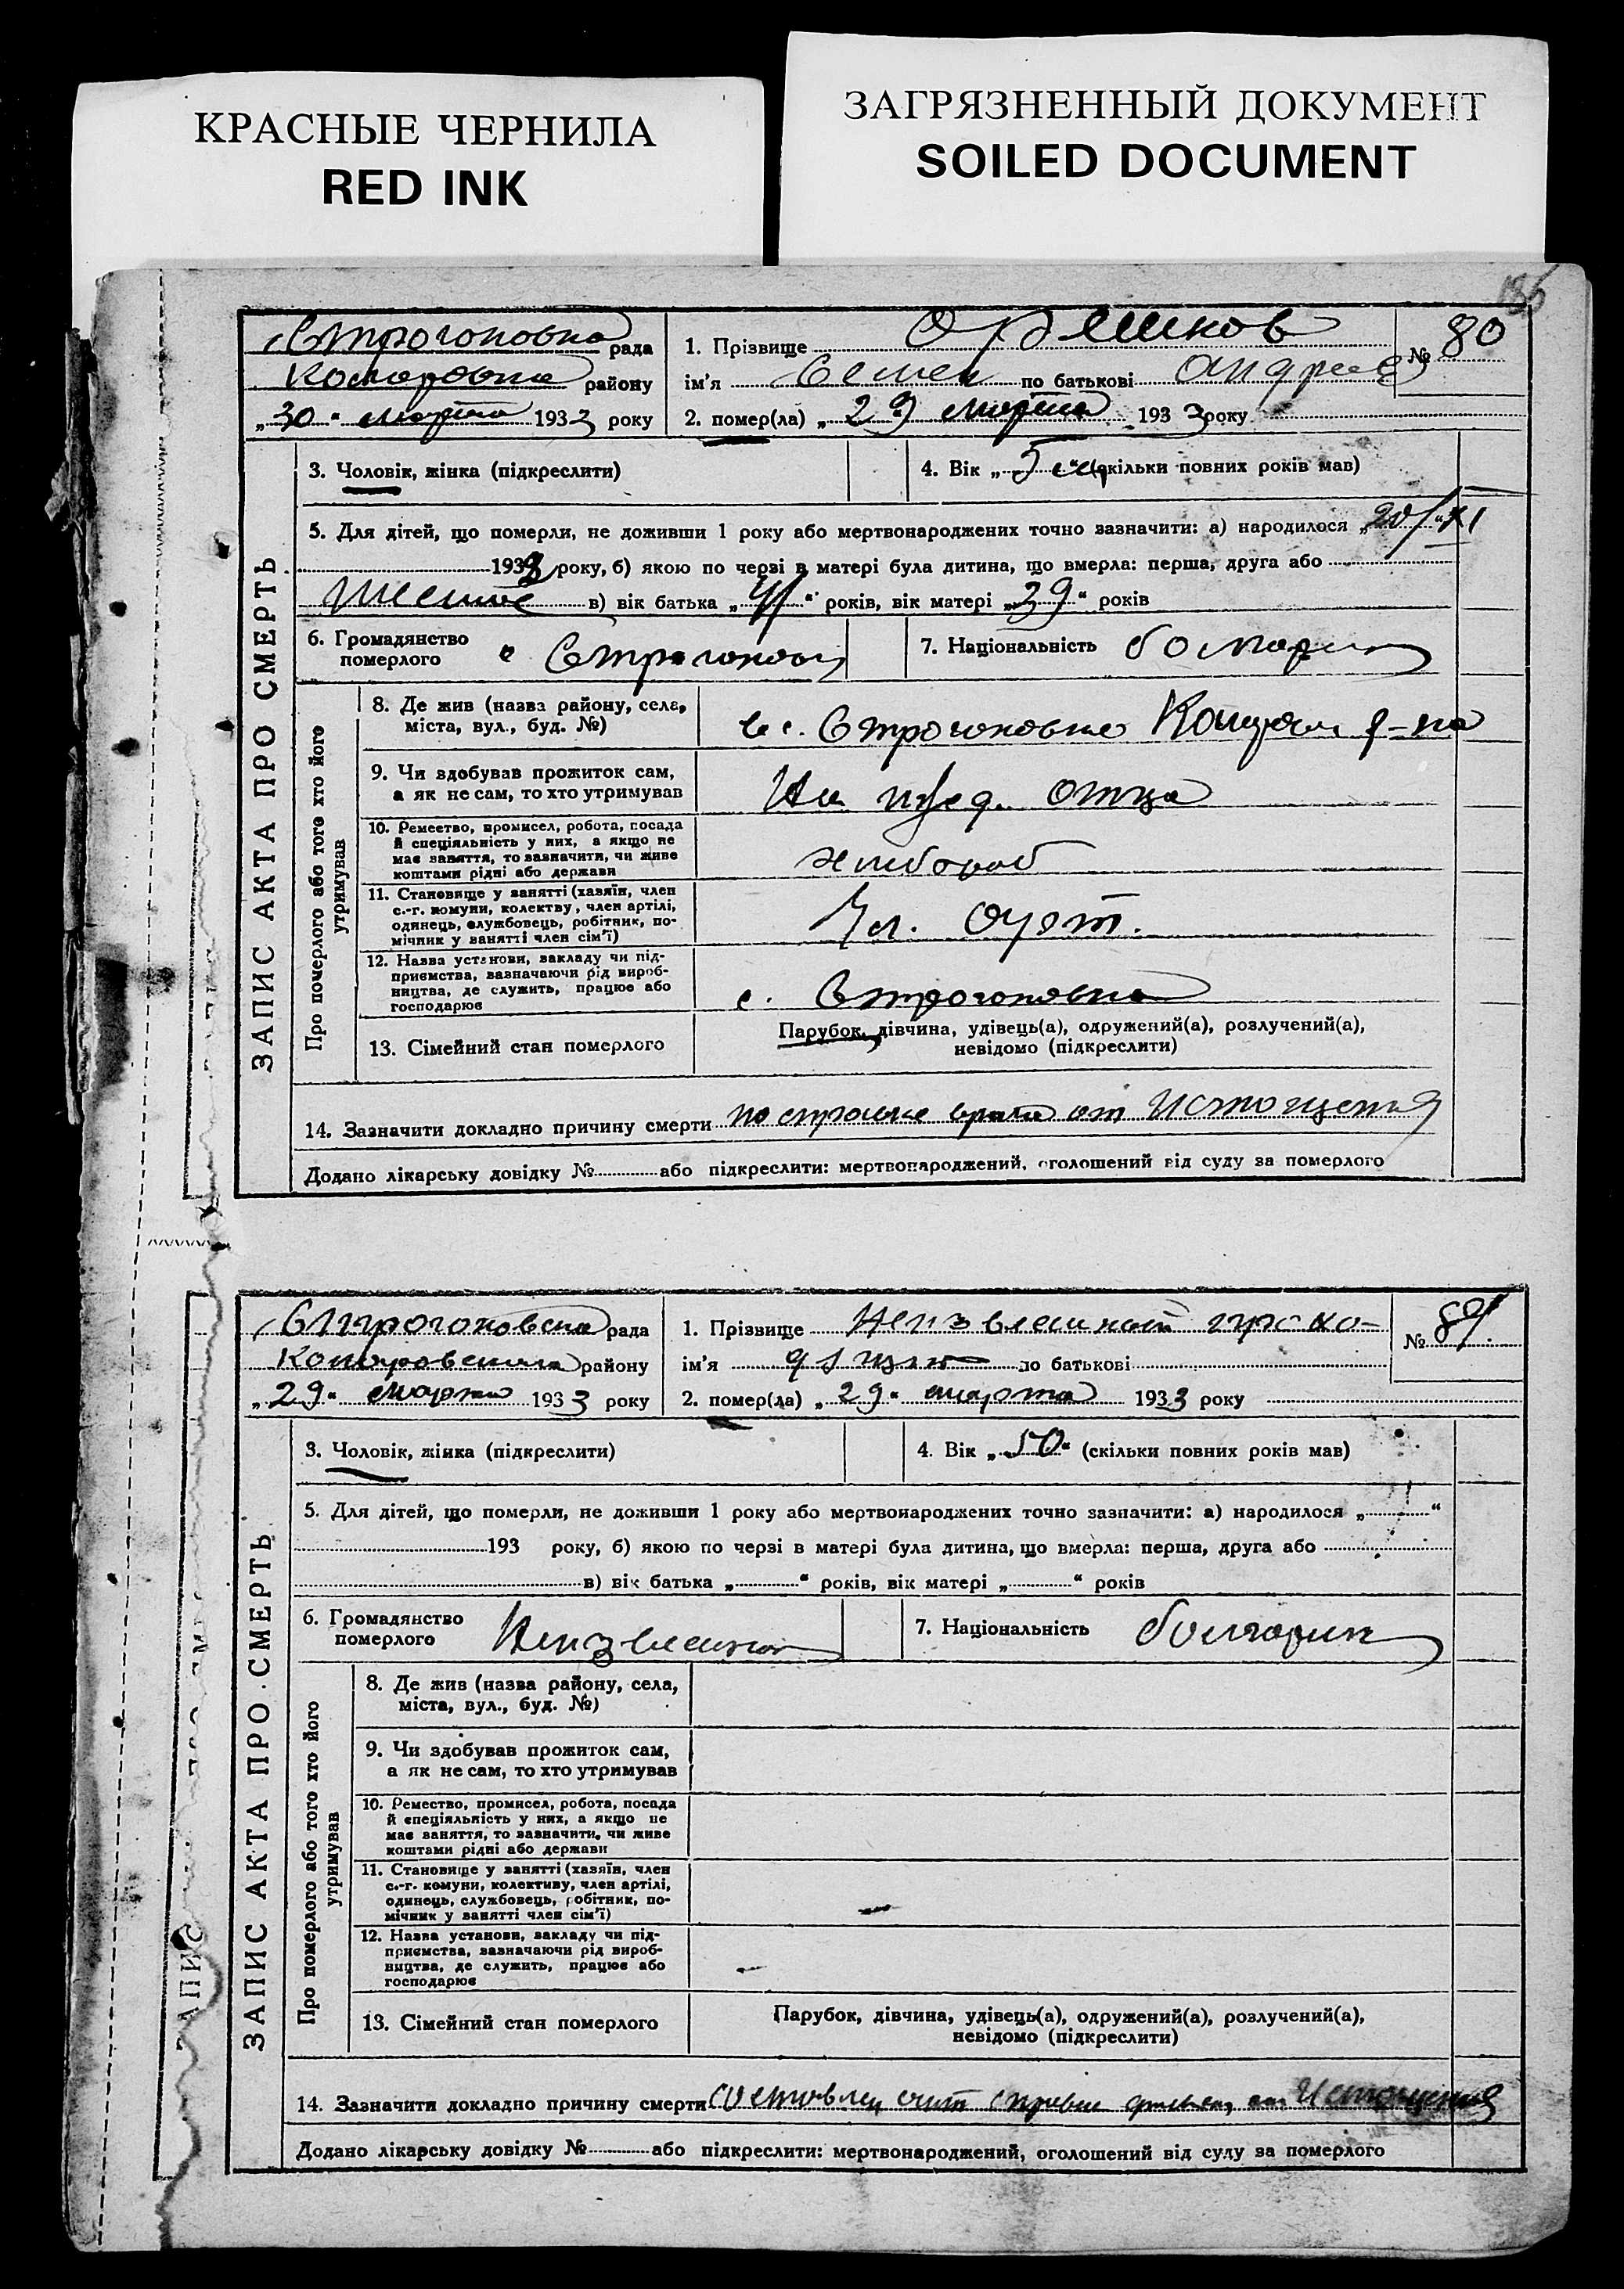 КРАСНЫЕ ЧЕРНИЛА
RED INK
ЗАГРЯЗНЕННЫЙ ДОКУМЕНТ
SOILED DOCUMENT
186
ЗАПИС АКТА ПРО СМЕРТЬ
Строгоновка рада
району
„30“ марта 1933 року
1. Прізвище Орешков
№ 80
ім'я Семен по батькові Андреев
2. помер(ла) „29 марта 1933 року
3. Чоловік, жінка (підкреслити)
4. Вік „5 м“ (скільки повних років мав)
5. Для дітей, що померли, не доживши 1 року або мертвонароджених точно зазначити: а) народилося „20/“ XI
193 року, б) якою по черзі в матері була дитина, що вмерла: перша, друга або
шестое в) вік батька „41“ років, вік матері „39“ років
6. Громадянство померлого
с Строгонов
7. Національність болгарин
Про померлого або того хто його утримував
8. Де жив (назва району, села, міста, вул., буд. №)
в с. Строгоновке р-на
9. Чи здобував прожиток сам, а як не сам, то хто утримував
На ижд. отца
10. Ремество, промисел, робота, посада й спеціяльність у них, а якщо не має заняття, то зазначити, чи живе коштами рідні або держави
хлебороб
11. Становище у занятті (хазяїн, член с.-г. комуни, колективу, член артілі, одинець, службовець, робітник, помічник у занятті член сім'ї)
Чл. арт.
12. Назва установи, закладу чи підприємства, зазначаючи рід виробництва, де служить, працює або господарює
с. Строгоновка
13. Сімейний стан померлого
Парубок, дівчина, удівець(а), одружений(а), розлучений(а),
невідомо (підкреслити)
14. Зазначити докладно причину смерти по справке врача от Истощения
Додано лікарську довідку № або підкреслити: мертвонароджений, оголошений від суду за померлого
ЗАПИС АКТА ПРО СМЕРТЬ
Строгоновска рада
району
„29“ марта 1933 року
1. Прізвище Неизвестный гражда-
№ 81
ім'я по батькові
2. помер(ла) „29“ марта 1933 року
3. Чоловік, жінка (підкреслити)
4. Вік „50“ (скільки повних років мав)
5. Для дітей, що померли, не доживши 1 року або мертвонароджених точно зазначити: а) народилося „ “
193 року, б) якою по черзі в матері була дитина, що вмерла: перша, друга або
в) вік батька „ “ років, вік матері „ “ років
6. Громадянство померлого
7. Національність болгарин
Про померлого або того хто його утримував
8. Де жив (назва району, села, міста, вул., буд. №)
9. Чи здобував прожиток сам, а як не сам, то хто утримував
10. Ремество, промисел, робота, посада й спеціяльність у них, а якщо не має заняття, то зазначити, чи живе коштами рідні або держави
11. Становище у занятті (хазяїн, член с.-г. комуни, колективу, член артілі, одинець, службовець, робітник, помічник у занятті член сім'ї)
12. Назва установи, закладу чи підприємства, зазначаючи рід виробництва, де служить, працює або господарює
13. Сімейний стан померлого
Парубок, дівчина, удівець(а), одружений(а), розлучений(а),
невідомо (підкреслити)
14. Зазначити докладно причину смерти Составлен акт от Истощения
Додано лікарську довідку № або підкреслити: мертвонароджений, оголошений від суду за померлого